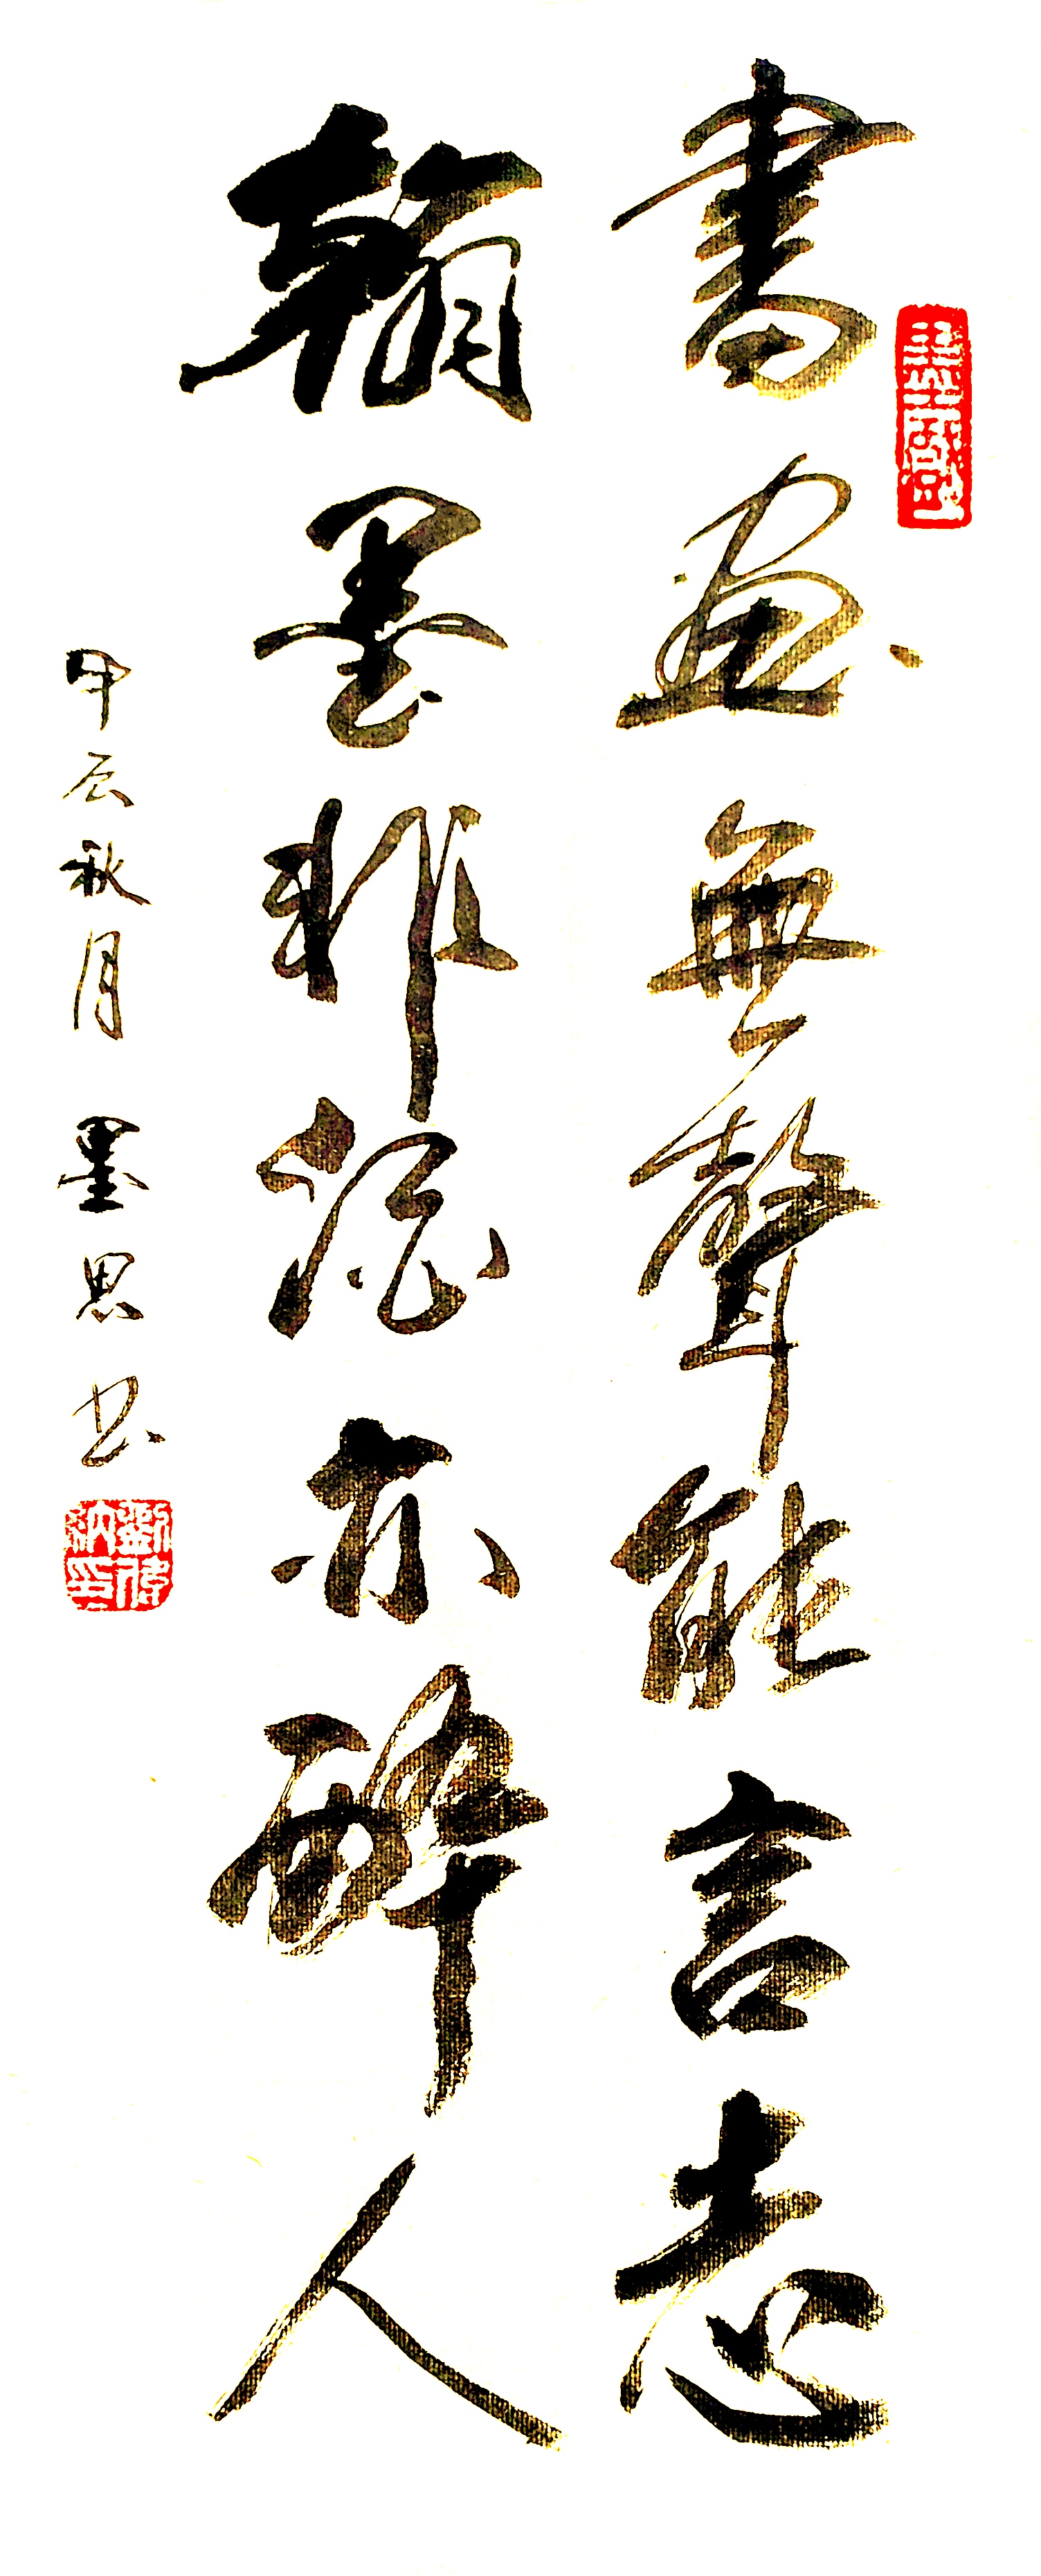 書畫無聲能言志
翰墨非酒亦醉人
甲辰秋月 墨思书